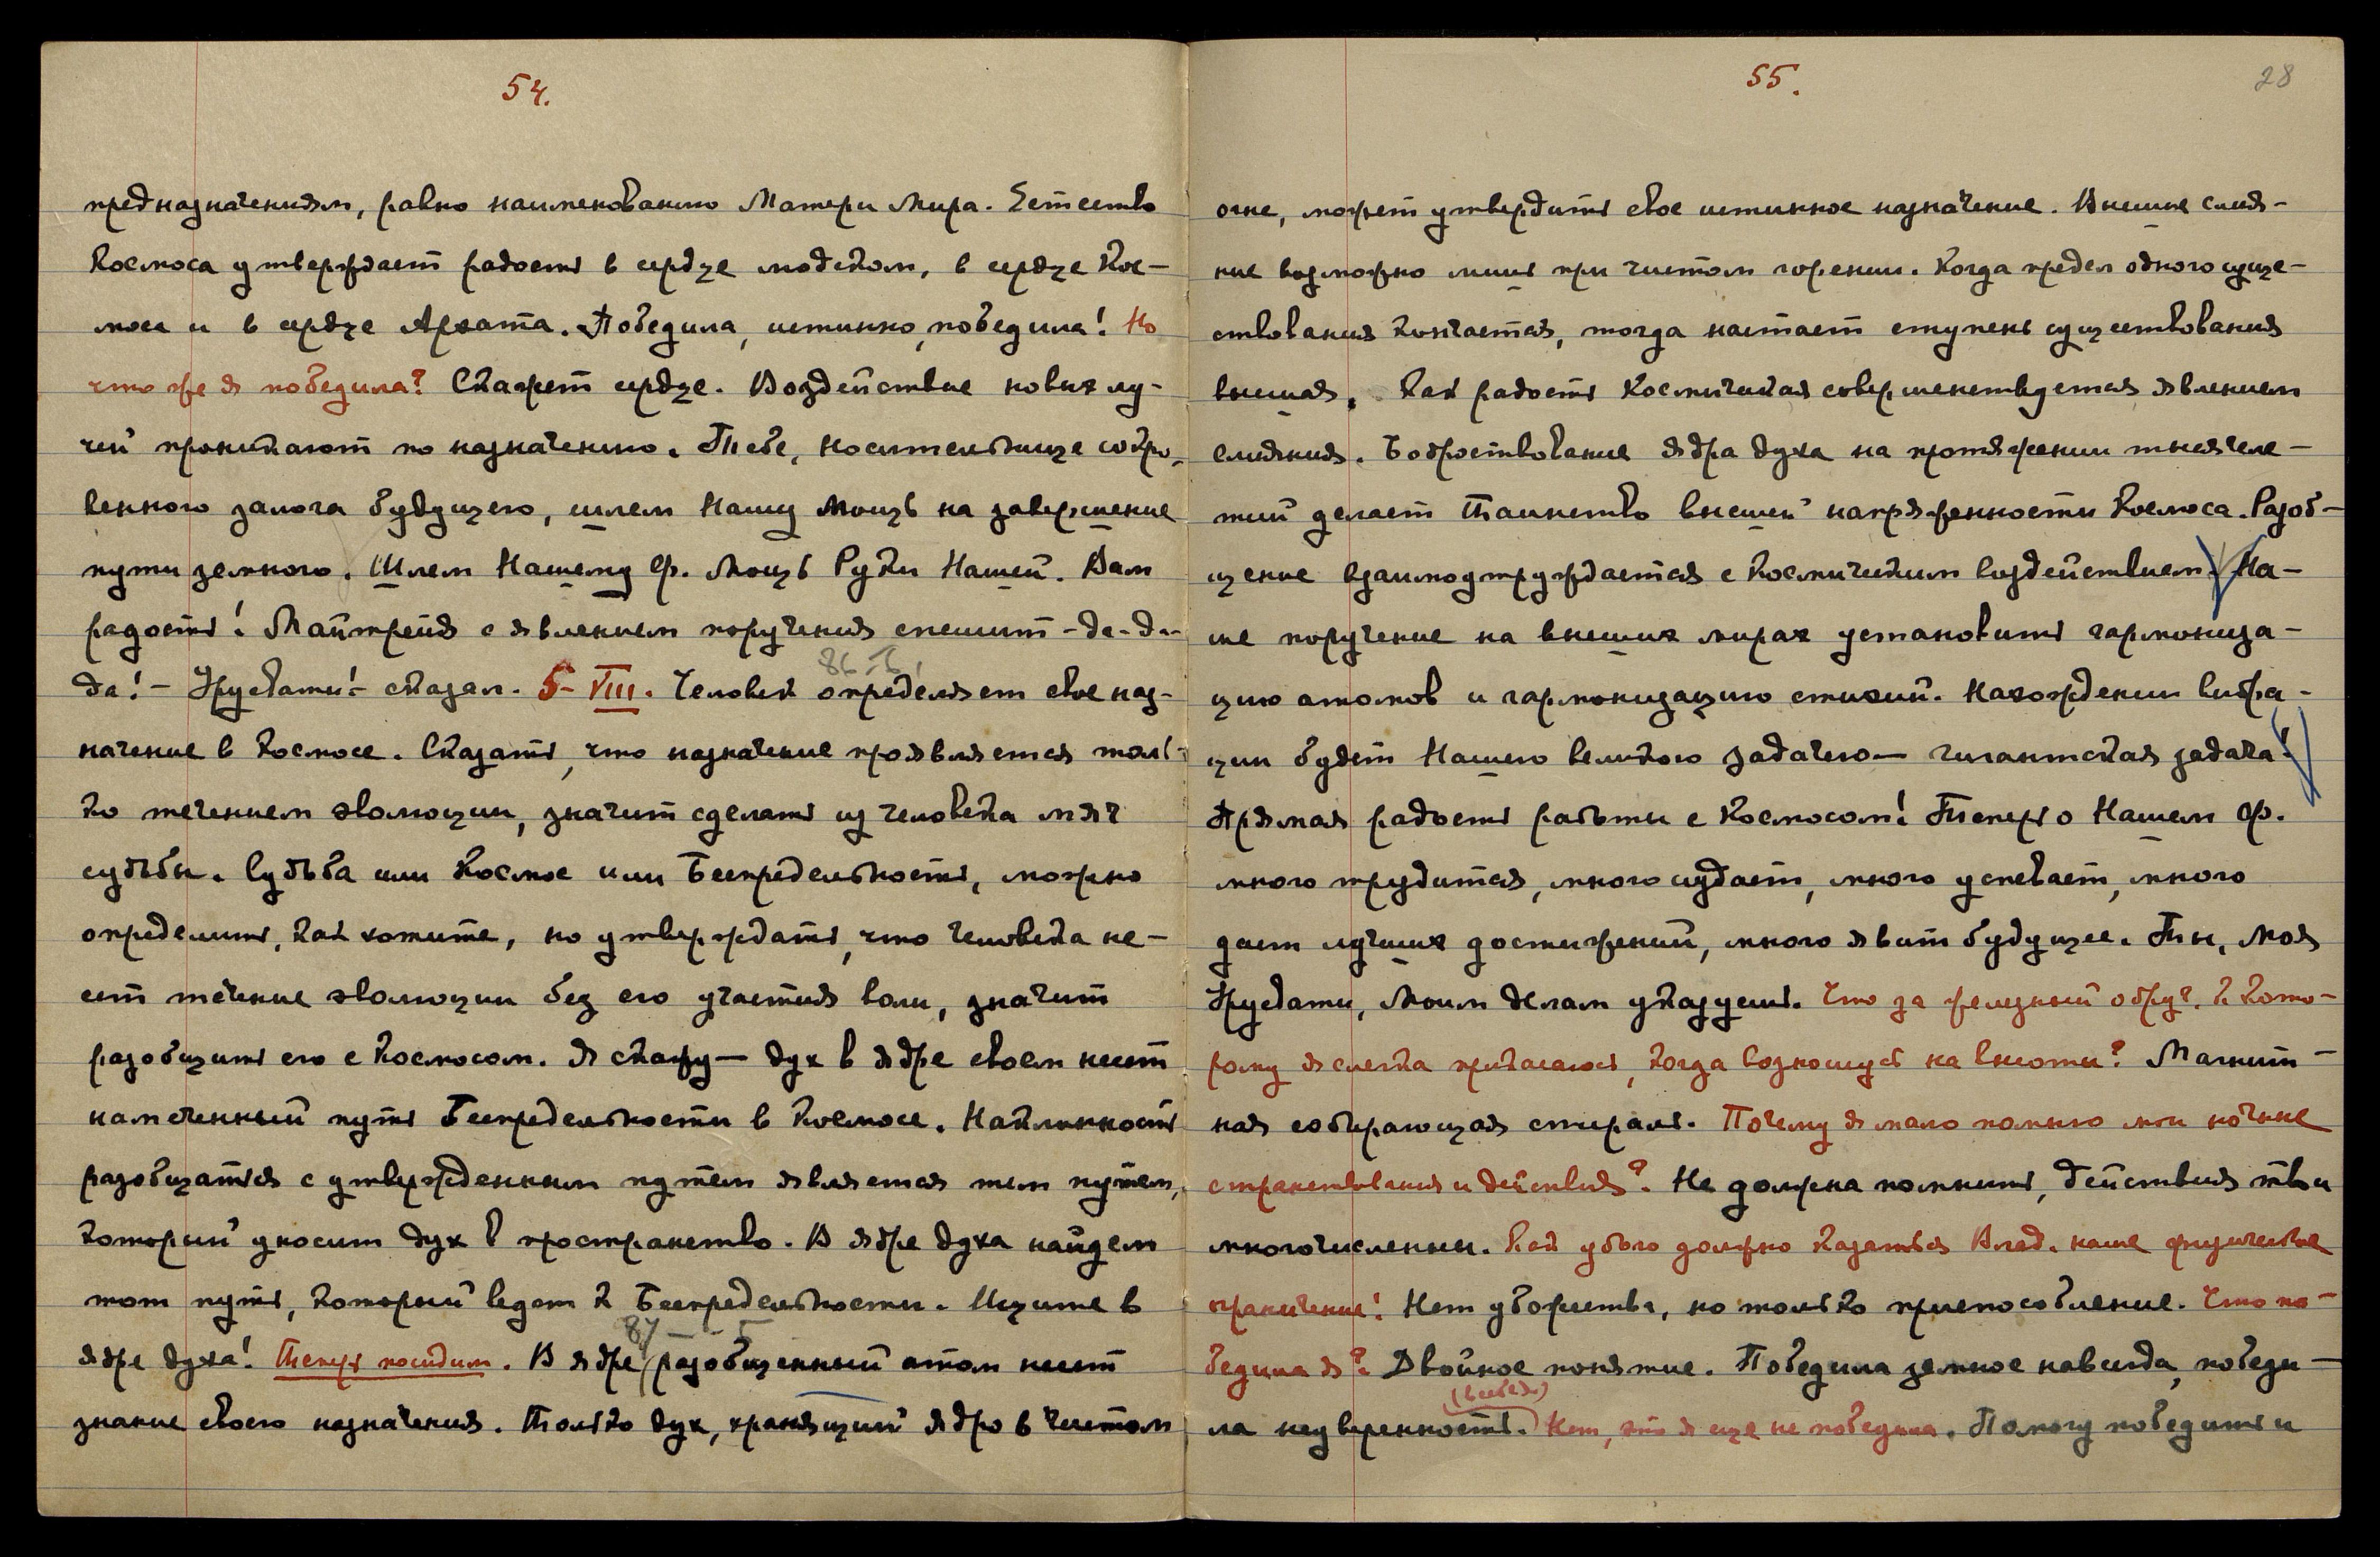 54.
предназначениям, равно наименованию Матери Мира. Естество
Космоса утверждает радость в сердце людском, в сердце Кос-
моса и в сердце Архата. Победила, истинно, победила! Но
что же я победила? Скажет сердце. Воздействие новых лу-
чей проникают по назначению. Тебе, носительнице сокро-
венного залога будущего, шлем Нашу Мощь на завершение
пути земного. Шлем Нашему Ф. Мощь Руки Нашей. Вам
радость! Майтрейя с явлением поручения спешит - да - да -
да! - Урусвати! - сказал. 5 - VIII. Человек определяет свое наз-
начение в Космосе. Сказать, что назначение проявляется толь-
ко течением эволюции, значит сделать из человека мяч
судьбы. Судьба или Космос или Беспредельность, можно
определить, как хотите, но утверждать, что человека не-
сет течение эволюции без его участия воли, значит
разобщить его с Космосом. Я скажу — дух в ядре своем несет
намеченный путь Беспредельности в Космосе. Наклонность
разобщаться с утвержденным путем является тем путем,
который уносит дух в пространство. В ядре духа найдем
тот путь, который ведет к Беспредельности. Ищите в
ядре духа! Теперь посидим. В ядре разобщенный атом несет
знание своего назначения. Только дух, хранящий ядро в чистом
55.
28
огне, может утвердить свое истинное назначение. Высшее слия-
ние возможно лишь при чистом горении. Когда предел одного суще-
ствования кончается, тогда настает ступень существования
высшая. Как радость Космическая совершенствуется явлением
слияния. Бодрствование ядра духа на протяжении тысячеле-
тий делает Таинство высшей напряженности Космоса. Разоб-
щение взаимоутруждается с Космическим воздействием. На-
ше поручение на высших мирах установить гармониза-
цию атомов и гармонизацию стихий. Нахождении вибра-
ции будет Нашею великою задачею — гигантская задача!
Прямая радость работы с Космосом! Теперь о Нашем Ф.
много трудится, много создает, много успевает, много
дает лучших достижений, много явит будущее. Ты, Моя
Урусвати, Моим делам указуешь. Что за железный обруч, к кото-
рому я слегка прикасаюсь, когда возношусь на высоты? Магнит-
ная собирающая спираль. Почему я мало помню мои ночные
странствования и действия? Не должна помнить, действия твои
многочисленны. Как убого должно казаться Влад. наше физическое
ограничение! Нет убожества, но только приспособление. Что по-
бедила я? Двойное понятие. Победила земное навсегда, победи-
ла неуверенность. Нет, это я еще не победила. Помогу победить и